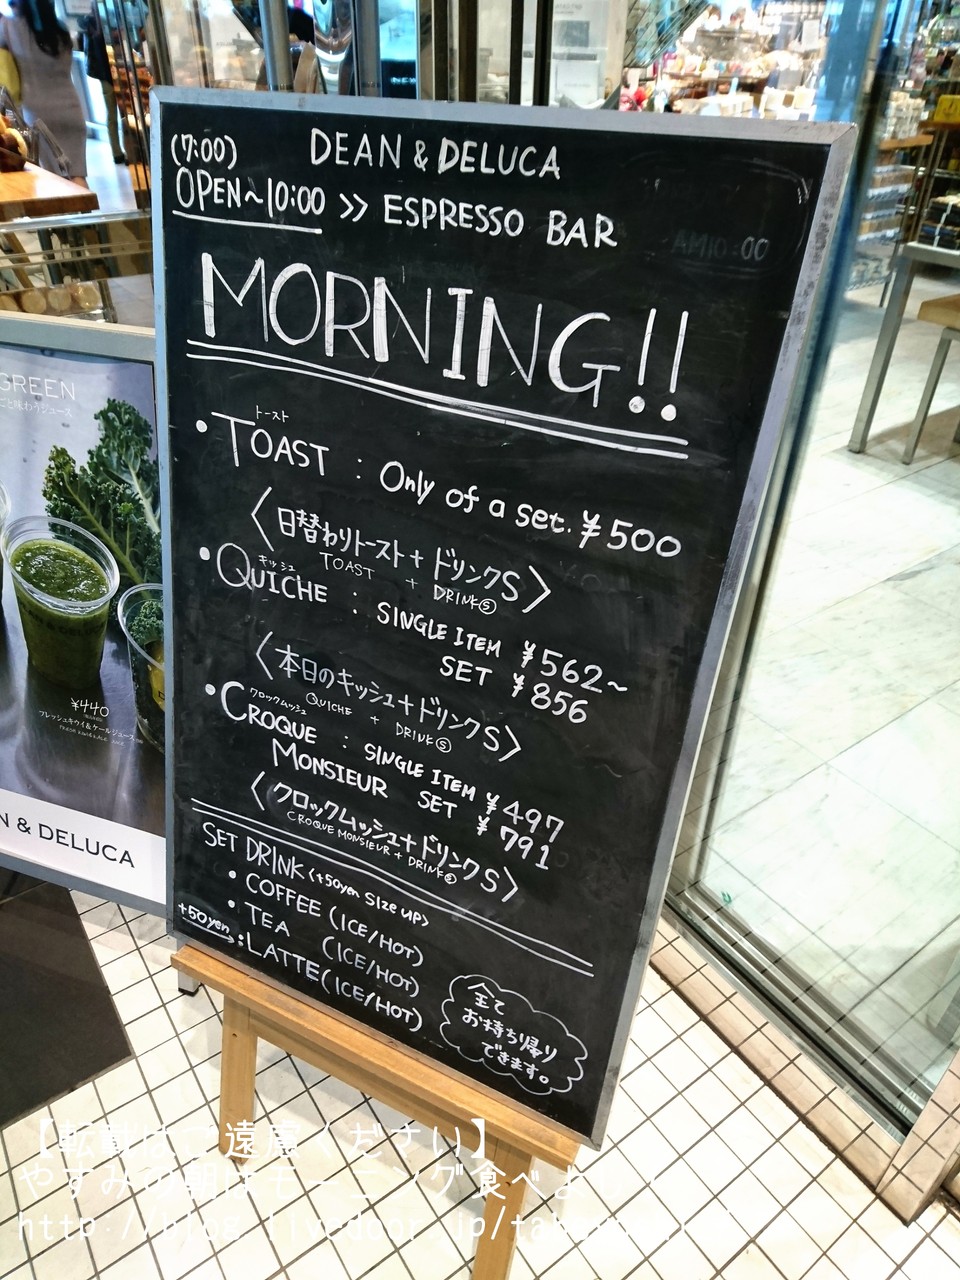 (7:00) DEAN & DELUCA
OPEN~10:00 >> ESPRESSO BAR
MORNING!!
トースト
• TOAST : Only of a set. ¥500
〈日替わりトースト+ドリンクS〉
TOAST + DRINKⓈ
キッシュ
• QUICHE : SINGLE ITEM ¥562~
SET ¥856
〈本日のキッシュ+ドリンクS〉
QUICHE + DRINKⓈ
クロックムッシュ
• CROQUE MONSIEUR : SINGLE ITEM ¥497
SET ¥791
〈クロックムッシュ+ドリンクS〉
CROQUE MONSIEUR + DRINKⓈ
SET DRINK <+50yen SIZE UP>
• COFFEE (ICE/HOT)
• TEA (ICE/HOT)
+50yen → : LATTE (ICE/HOT)
全て
お持ち帰り
できます。
GREEN
ごと味わうジュース
¥440
フレッシュキウイ&ケールジュース
N & DELUCA
【転載はご遠慮ください】
やすみの朝はモーニング食べよし!